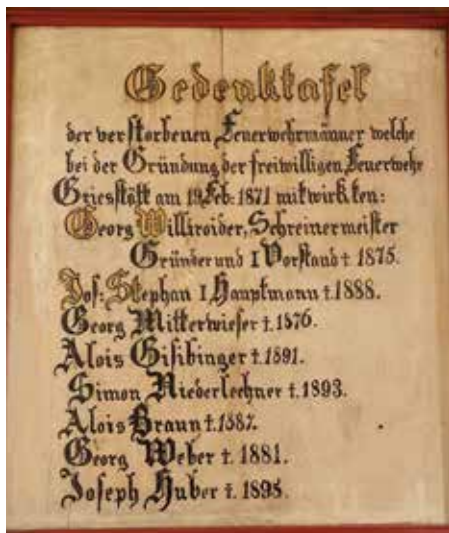 Gedenktafel
der verstorbenen Feuerwehrmänner welche
bei der Gründung der freiwilligen Feuerwehr
Griesstätt am 19.Feb: 1871 mitwirkten:
Georg Williroider, Schreinermeister
Gründer und I Vorstand † 1875.
Jos: Stephan I Hauptmann †.1888.
Georg Mitterwieser †.1876.
Alois †.1891.
Simon Niederlechner †.1893.
Alois Braun †.1887.
Georg Weber †. 1881.
Joseph Huber †. 1898.